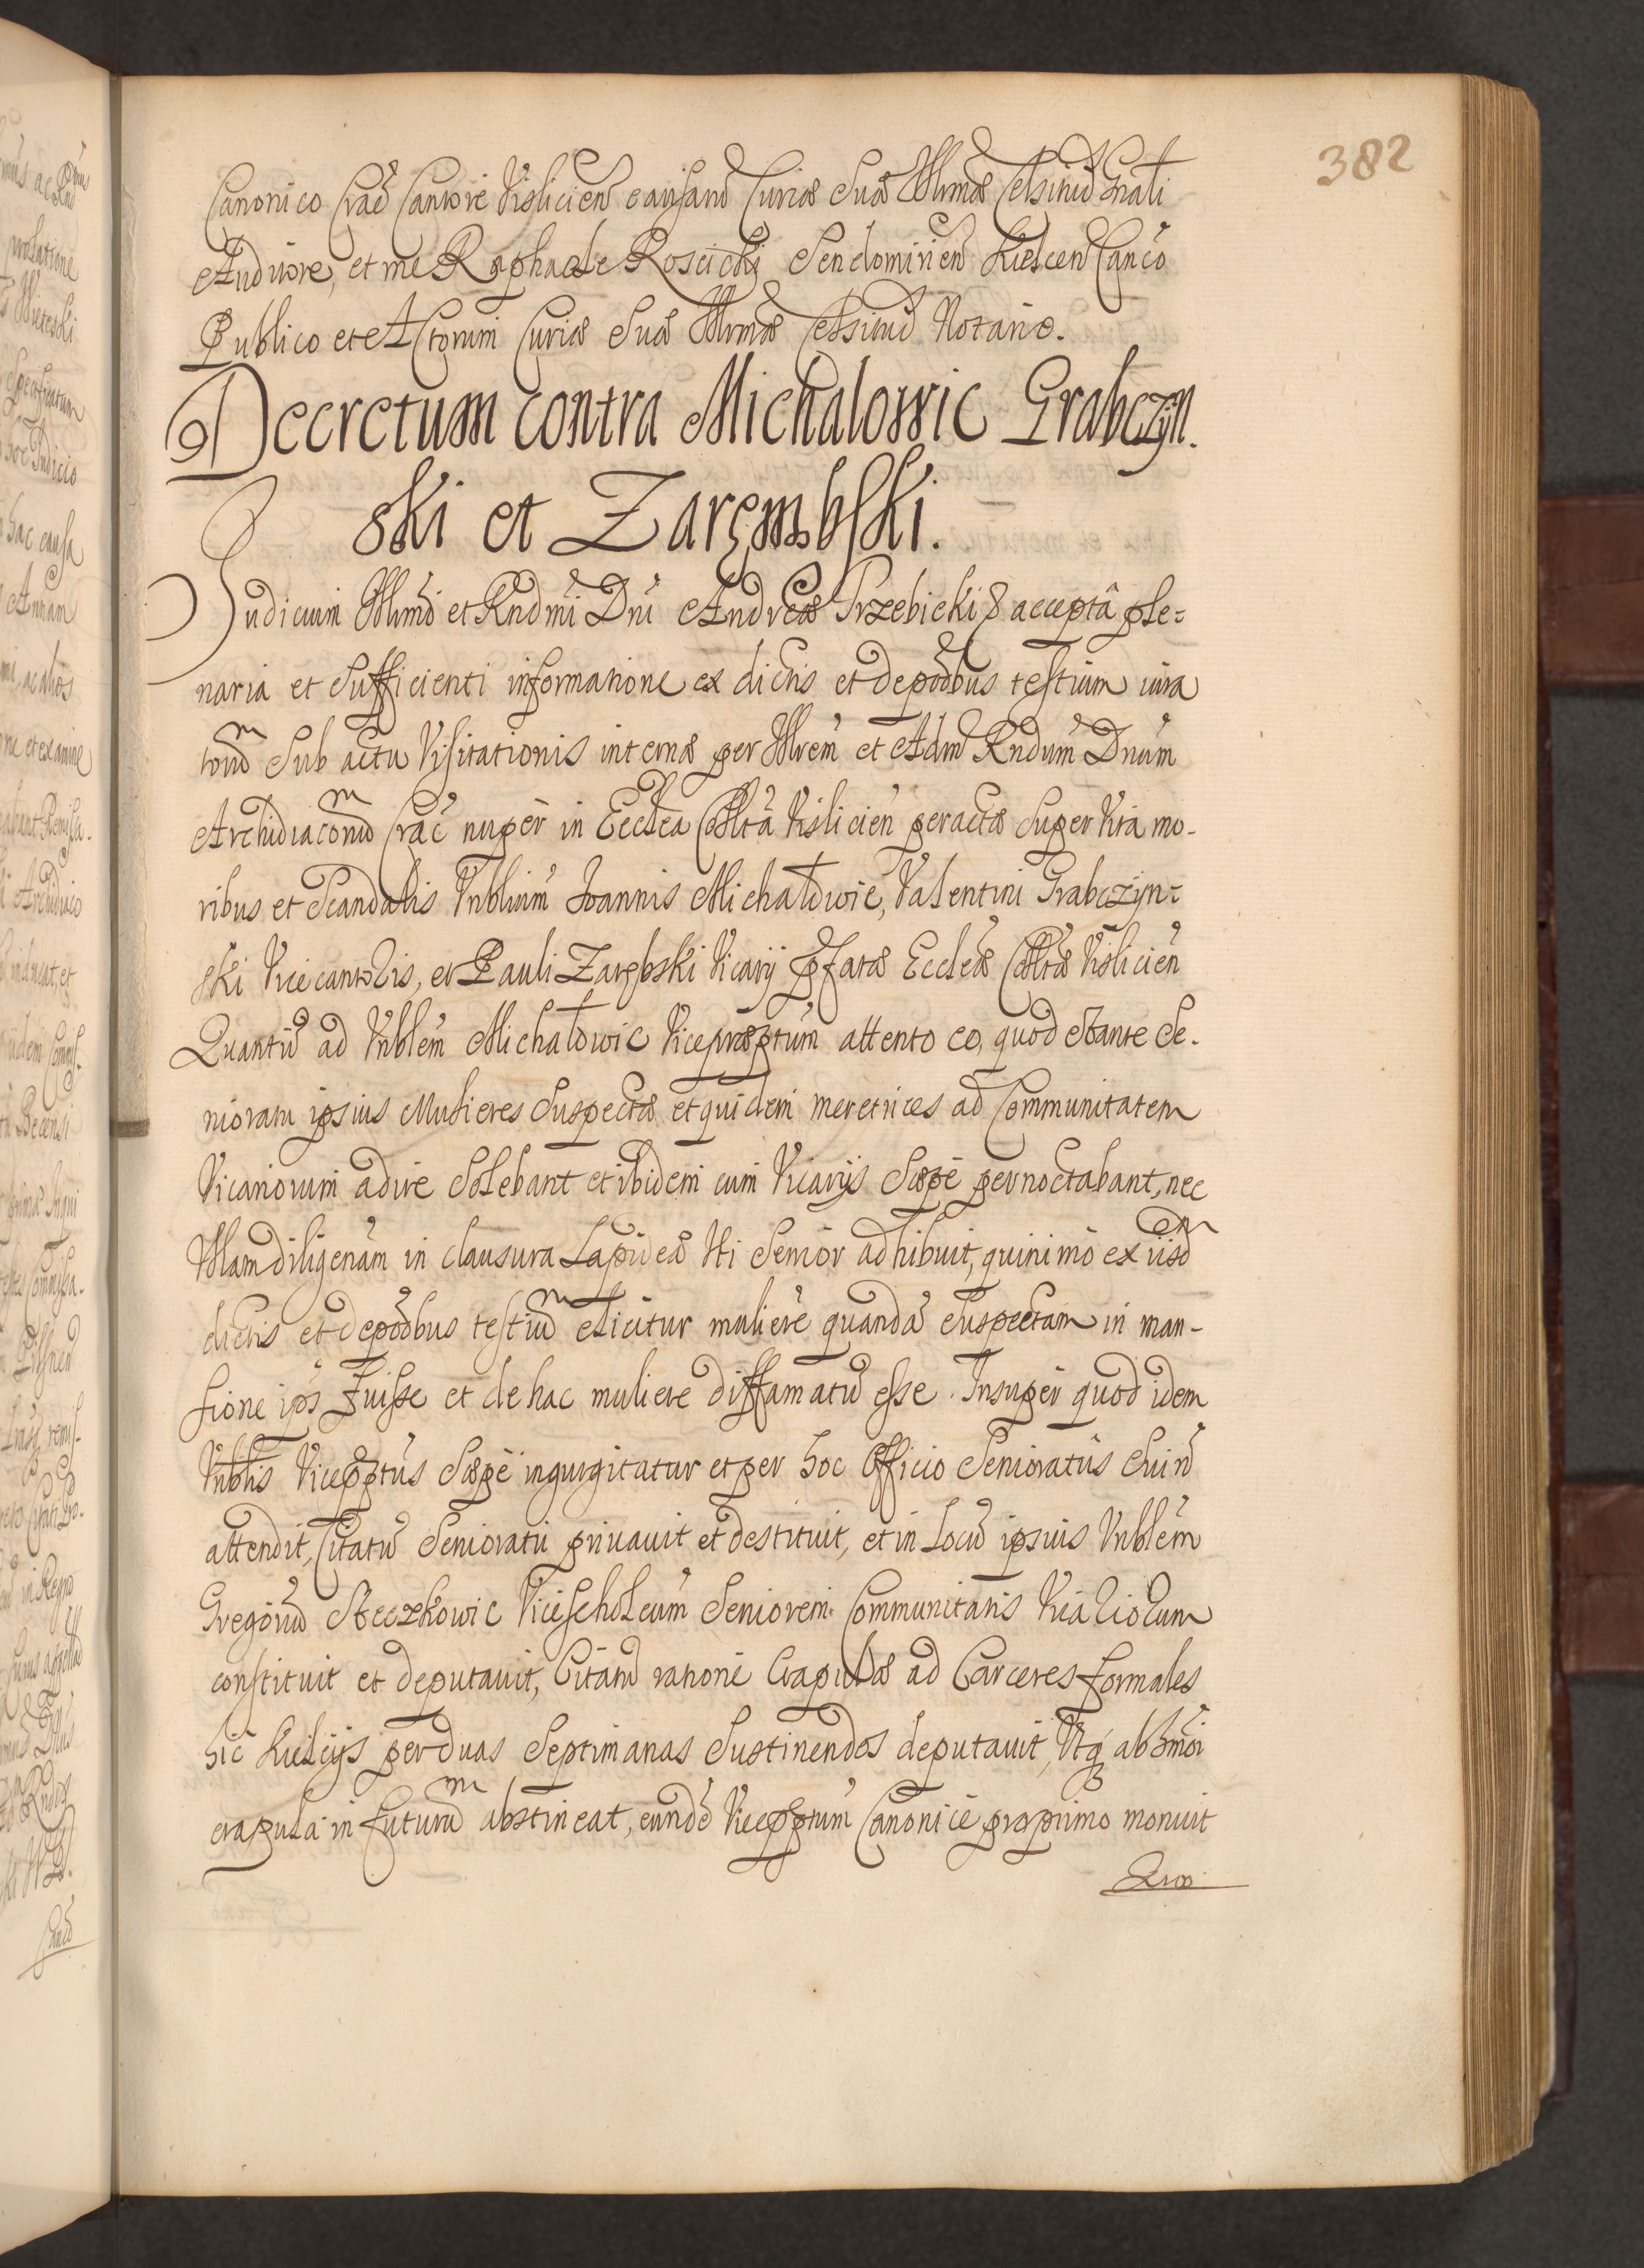 382
Canonico Crac̄ Cantore Vislicien̄ causarū Curiæ Suæ Illrmæ Celsitud gnāli
Auditore, et me Raphaele Roscicki Sendomirien̄ Kielcen̄ Canc̄o
Publico et Actorum Curiæ Suæ Illrmæ Celsitud Notario.
Decretum contra Michalowic Grabczyn.
ski et Zarembski.
Judicium Illrmi et Rndmi Dni Andreæ Trzebicki & acceptâ ple=
naria et sufficienti informatione ex dictis et depōōbus testium iura
torū Sub actu Visitationis internæ per Illrem et Adm Rndum Dnum
Archidiaconū Crac̄ nuper in Ecclēa Collta Vislicien̄ peractæ super vita mo-
ribus et Scandalis Vnblium Ioannis Michałowic, Valentini Grabczyn=
ski Vicecantoris, et Pauli Zarębski Vicarij pfatæ Ecclēæ Colltæ Vislicien̄
Quantū ad Vnblem Michałowic Vicepræptum attento eo, quod stante Se.
nioratu ipsius Mulieres Suspectæ et quidem meretrices ad Communitatem
Vicariorum adire Solebant et ibidem cum Vicarijs Sæpe pernoctabant, nec
Vllam diligenām in clausura Lapidea Vti Senior adhibuit, quinimo ex iisd
dictis et depōōbus testiū elicitur mulierē quandā Suspectam in man-
sione ips̄ fuisse et de hac muliere diffamatū esse. Insuper quod idem
Vnblis Viceppt̄us Sæpe ingurgitatur et per hoc Officio Senioratus Sui n̄
attendit, Citatū Senioratu privavit et destituit, et in Locū ipsius Vnblem
Gregoriū Steczkowic Vicescholcum Seniorem Communitatis Viariorum
constituit et deputavit, Citatū ratione Crapulæ ad Carceres formales
hic Kielcijs per duas Septimanas Sustinendos deputavit, Vtq ab hmōi
crapula in futurū abstineat, eundē Viceppt̄um Canonice pro primo monuit
Quo